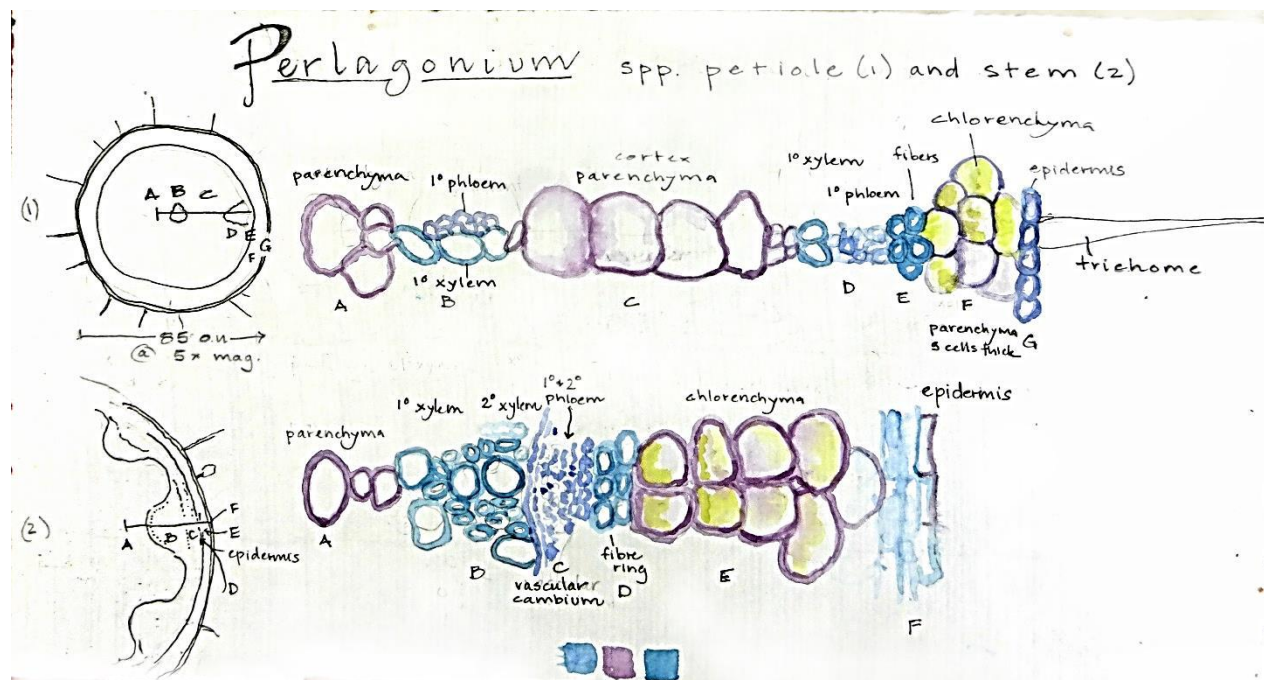 Perlagonium spp. petiole (1) and stem (2)
(1)
A B C
D E
F G
5x mag.
parenchyma
1° phloem
1° xylem
cortex
parenchyma
1° xylem
1° phloem
fibers
chlorenchyma
epidermis
trichome
A
B
C
D
E
F
G
parenchyma
5 cells thick
(2)
A B C
F
E
epidermis
D
parenchyma
1° xylem
2° xylem
1° + 2°
phloem
chlorenchyma
epidermis
A
B
C
vascular
cambium
fibre
ring
D
E
F